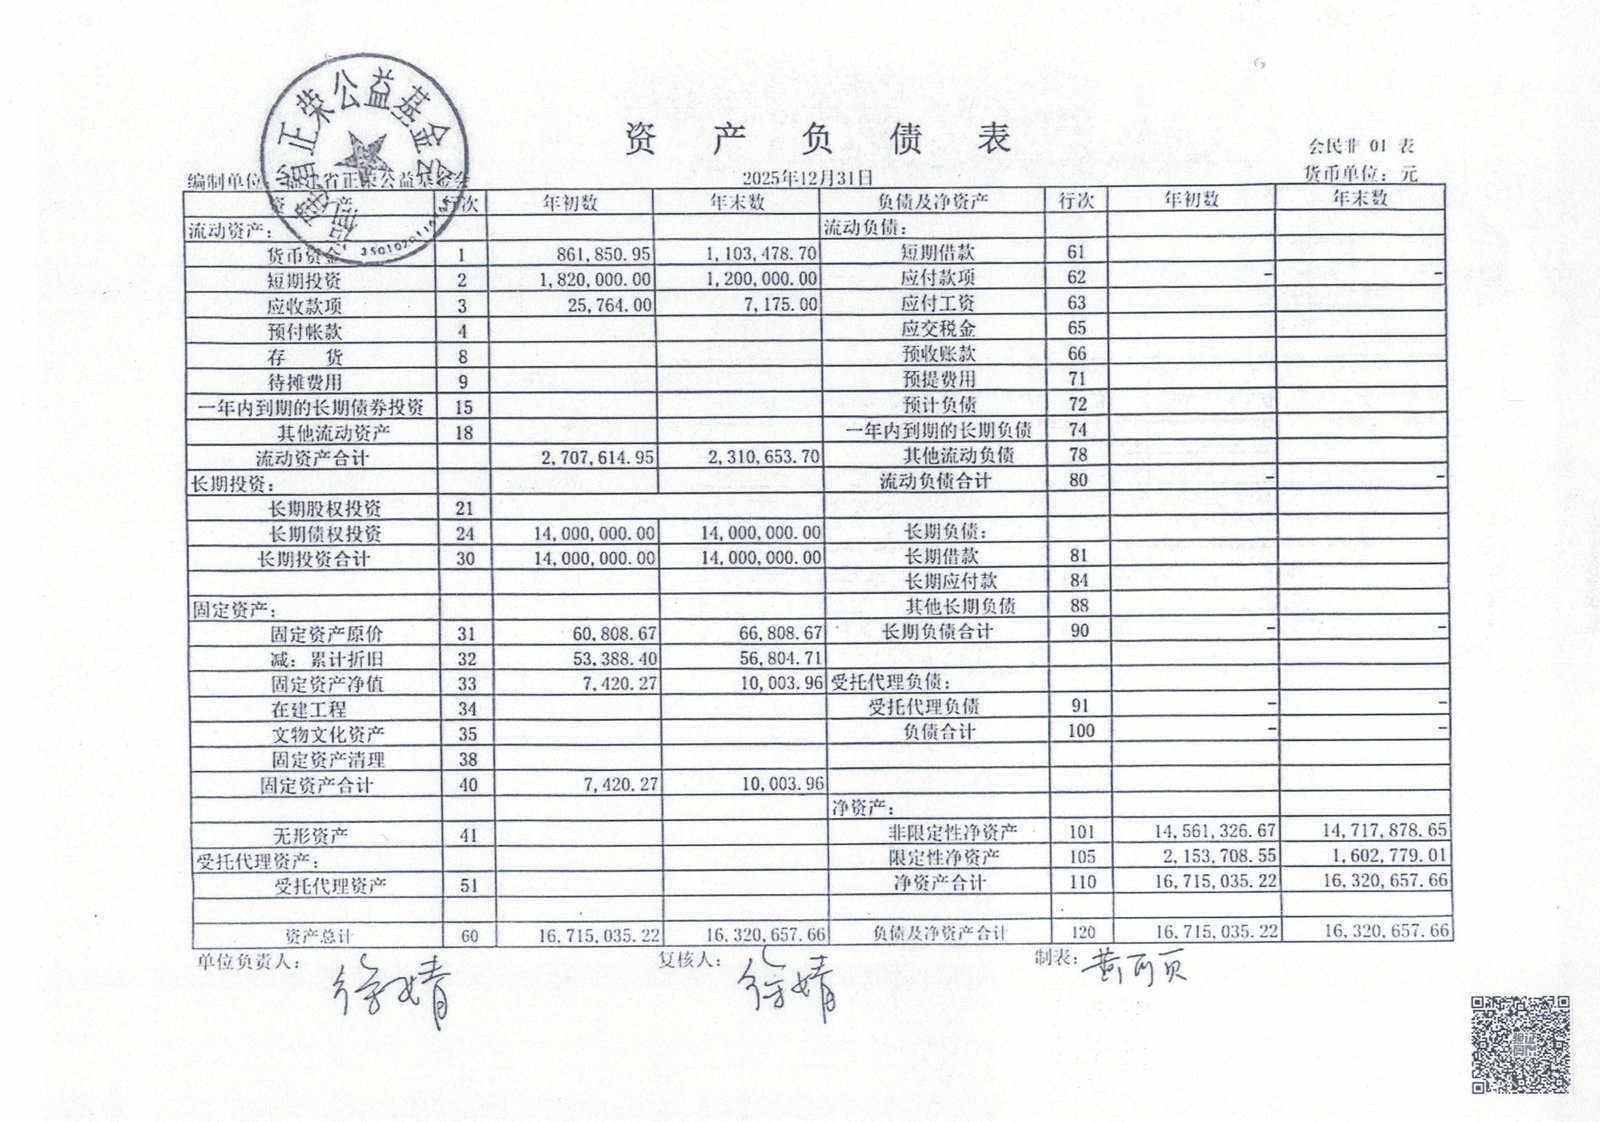 资产负债表
会民非 01 表
编制单位：福建省正荣公益基金会
2025年12月31日
货币单位：元
资 产 行次 年初数 年末数 负债及净资产 行次 年初数 年末数
流动资产： 流动负债：
货币资金 1 861,850.95 1,103,478.70 短期借款 61
短期投资 2 1,820,000.00 1,200,000.00 应付款项 62 - -
应收款项 3 25,764.00 7,175.00 应付工资 63
预付帐款 4 应交税金 65
存 货 8 预收账款 66
待摊费用 9 预提费用 71
一年内到期的长期债券投资 15 预计负债 72
其他流动资产 18 一年内到期的长期负债 74
流动资产合计 2,707,614.95 2,310,653.70 其他流动负债 78
长期投资： 流动负债合计 80 - -
长期股权投资 21
长期债权投资 24 14,000,000.00 14,000,000.00 长期负债：
长期投资合计 30 14,000,000.00 14,000,000.00 长期借款 81
长期应付款 84
固定资产： 其他长期负债 88
固定资产原价 31 60,808.67 66,808.67 长期负债合计 90 - -
减：累计折旧 32 53,388.40 56,804.71
固定资产净值 33 7,420.27 10,003.96 受托代理负债：
在建工程 34 受托代理负债 91 - -
文物文化资产 35 负债合计 100 - -
固定资产清理 38
固定资产合计 40 7,420.27 10,003.96
净资产：
无形资产 41 非限定性净资产 101 14,561,326.67 14,717,878.65
受托代理资产： 限定性净资产 105 2,153,708.55 1,602,779.01
受托代理资产 51 净资产合计 110 16,715,035.22 16,320,657.66
资产总计 60 16,715,035.22 16,320,657.66 负债及净资产合计 120 16,715,035.22 16,320,657.66
单位负责人： 复核人： 制表：
福建省正荣公益基金会